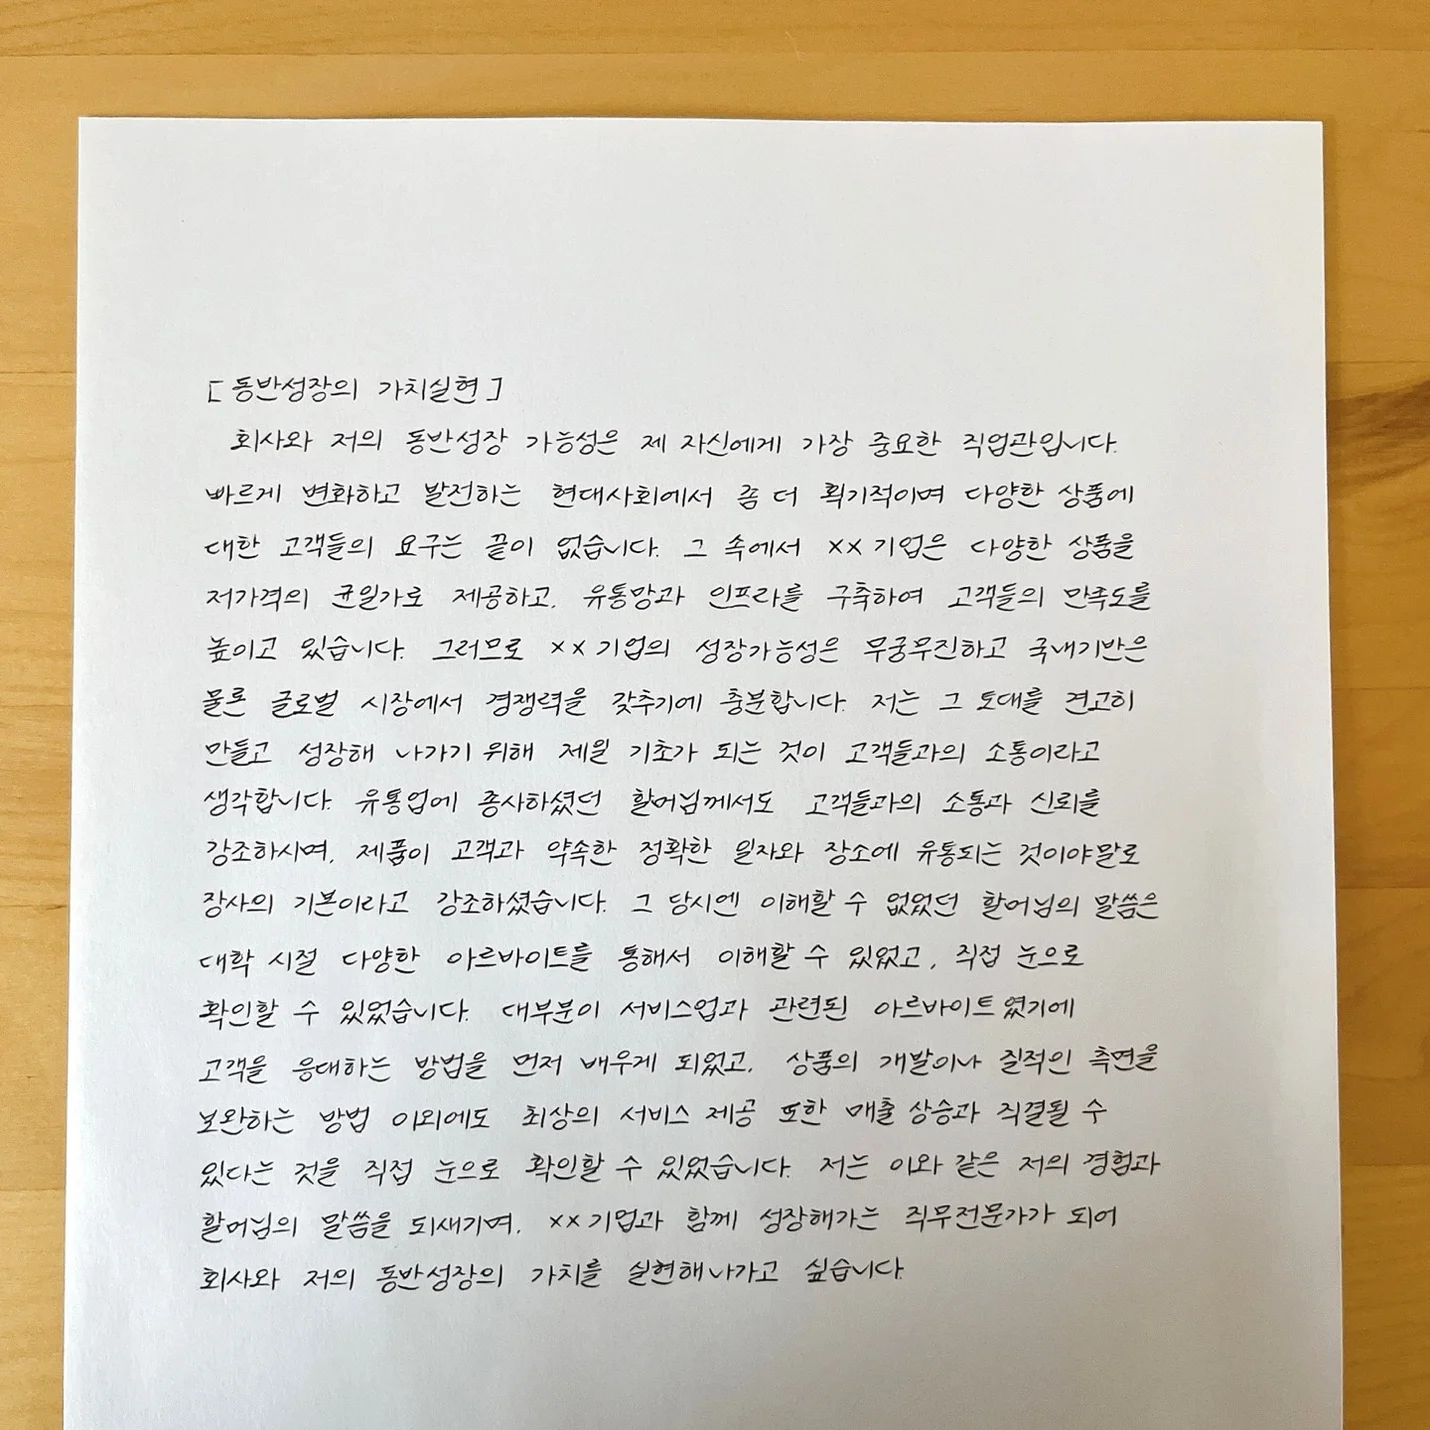 [동반성장의 가치실현]
회사와 저의 동반성장 가능성은 제 자신에게 가장 중요한 직업관입니다.
빠르게 변화하고 발전하는 현대사회에서 좀 더 획기적이며 다양한 상품에
대한 고객들의 요구는 끝이 없습니다. 그 속에서 ×× 기업은 다양한 상품을
저가격의 균일가로 제공하고, 유통망과 인프라를 구축하여 고객들의 만족도를
높이고 있습니다. 그러므로 ×× 기업의 성장가능성은 무궁무진하고 국내기반은
물론 글로벌 시장에서 경쟁력을 갖추기에 충분합니다. 저는 그 토대를 견고히
만들고 성장해 나가기 위해 제일 기초가 되는 것이 고객들과의 소통이라고
생각합니다. 유통업에 종사하셨던 할머님께서도 고객들과의 소통과 신뢰를
강조하시며, 제품이 고객과 약속한 정확한 일자와 장소에 유통되는 것이야말로
장사의 기본이라고 강조하셨습니다. 그 당시엔 이해할 수 없었던 할머님의 말씀은
대학 시절 다양한 아르바이트를 통해서 이해할 수 있었고, 직접 눈으로
확인할 수 있었습니다. 대부분이 서비스업과 관련된 아르바이트였기에
고객을 응대하는 방법을 먼저 배우게 되었고, 상품의 개발이나 질적인 측면을
보완하는 방법 이외에도 최상의 서비스 제공 또한 매출 상승과 직결될 수
있다는 것을 직접 눈으로 확인할 수 있었습니다. 저는 이와 같은 저의 경험과
할머님의 말씀을 되새기며, ×× 기업과 함께 성장해가는 직무전문가가 되어
회사와 저의 동반성장의 가치를 실현해나가고 싶습니다.